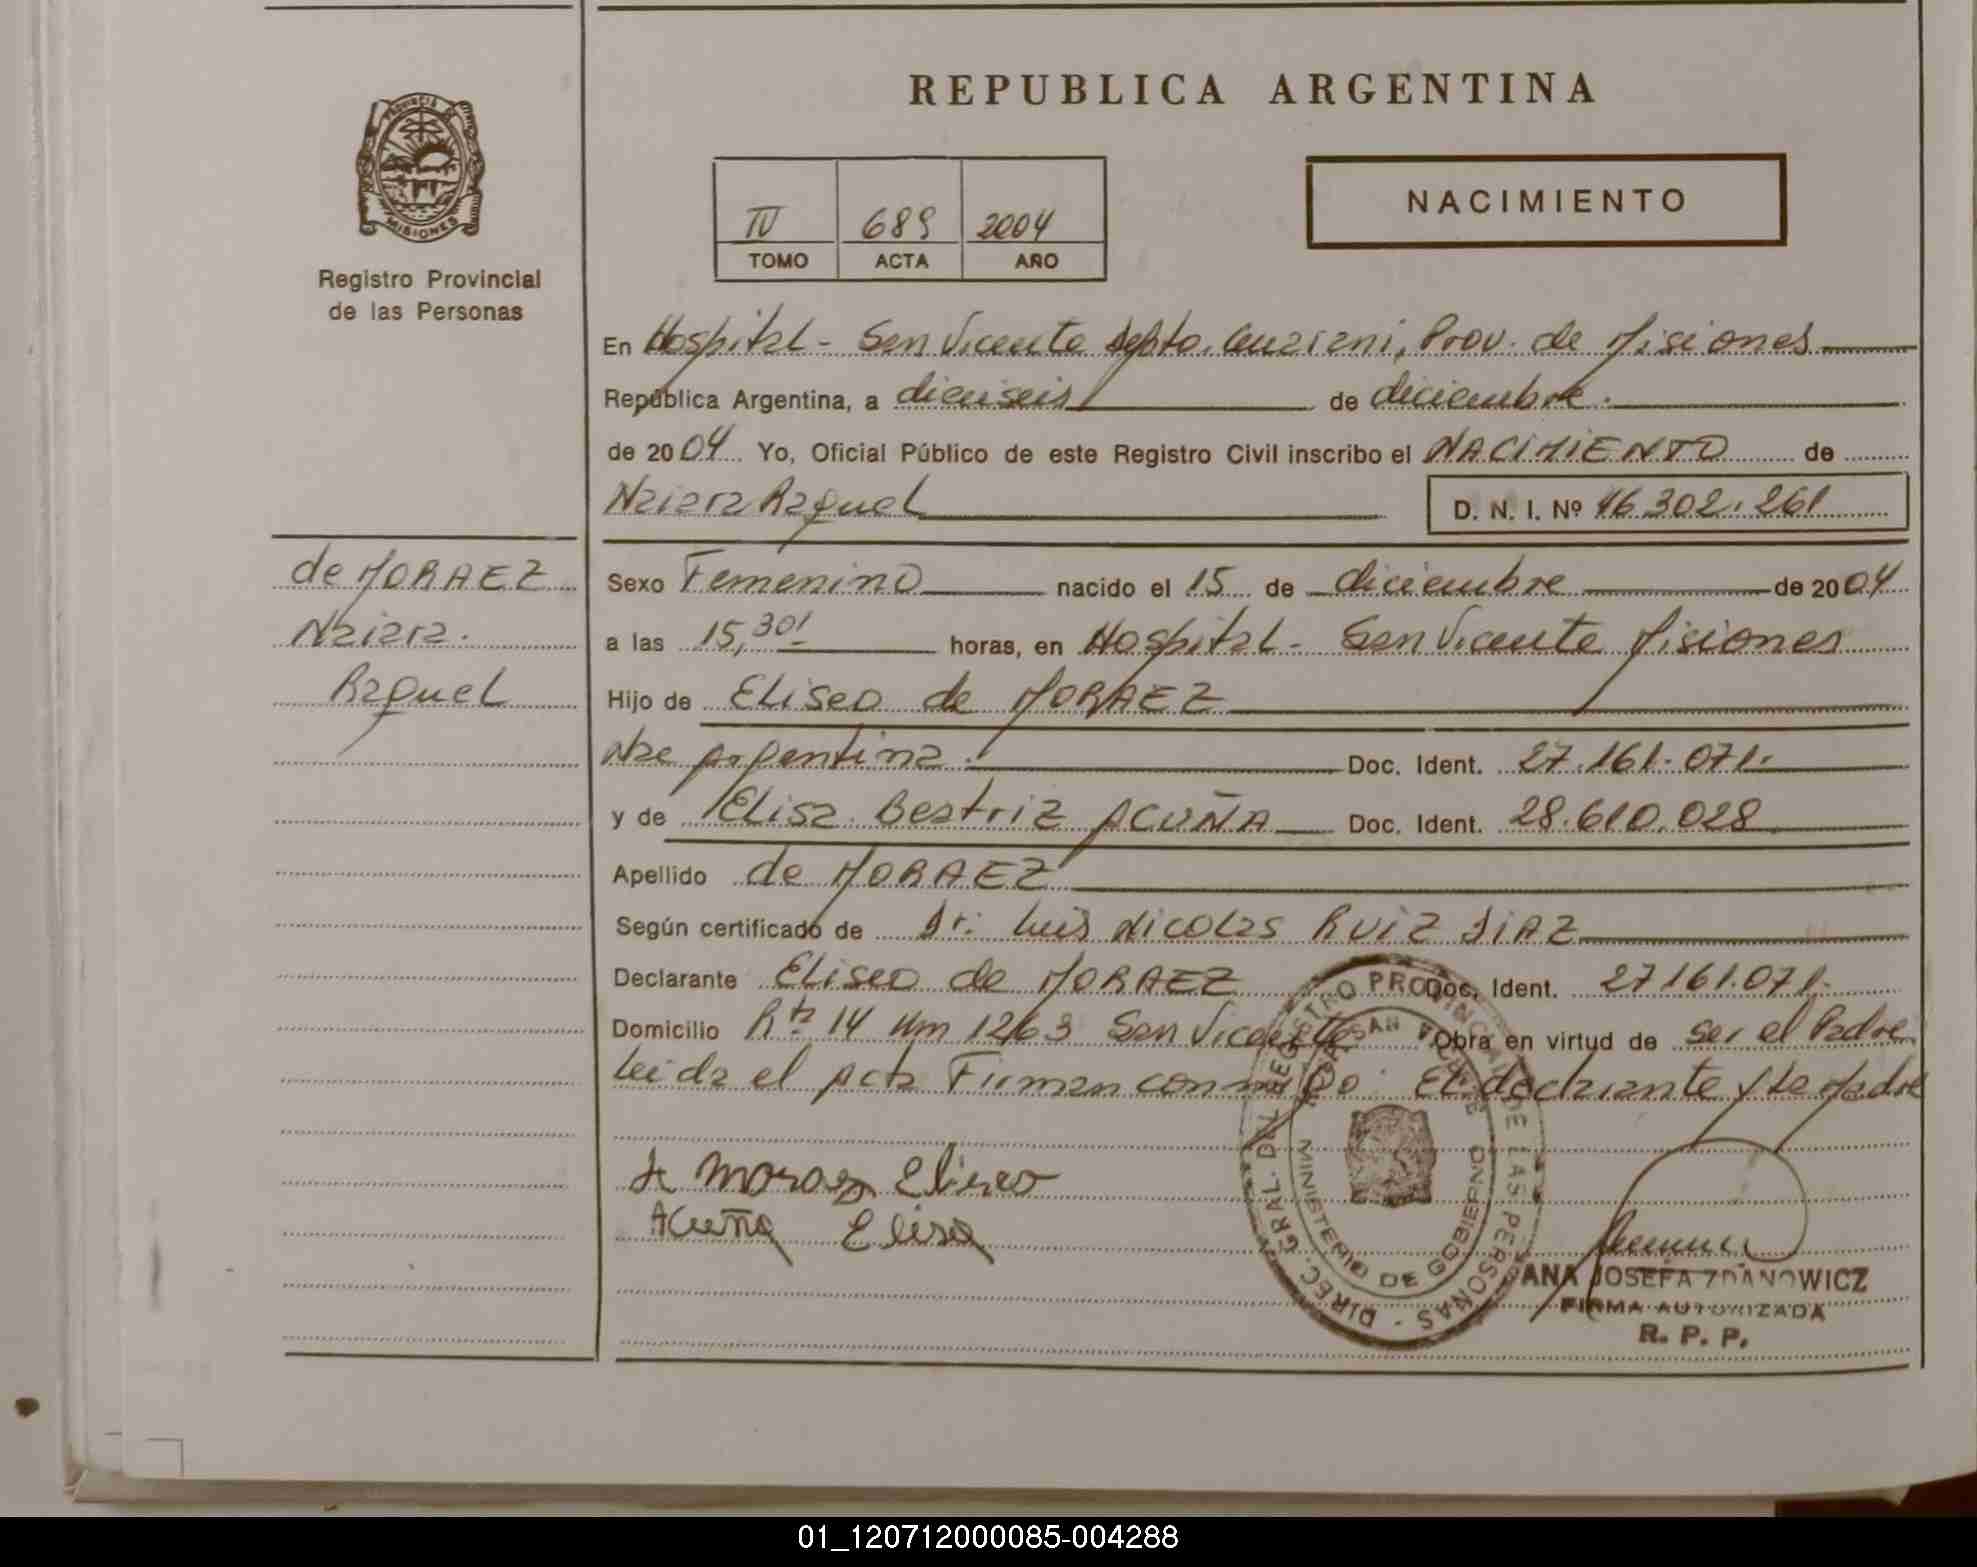 REPUBLICA ARGENTINA
PROVINCIA DE MISIONES
Registro Provincial
de las Personas
IV 689 2004
TOMO ACTA AÑO
NACIMIENTO
En Hospital - San Vicente Depto. Guarani, Prov. de Misiones
República Argentina, a dieciseis de diciembre.
de 2004 Yo, Oficial Público de este Registro Civil inscribo el NACIMIENTO de
Naiara Raquel D. N. I. Nº 46.302.261
de MORAEZ
Naiara.
Raquel
Sexo Femenino nacido el 15 de diciembre de 2004
a las 15,30' horas, en Hospital - San Vicente Misiones
Hijo de Eliseo de MORAEZ
Nac Argentina. Doc. Ident. 27.161.071.
y de Elisa Beatriz ACUÑA Doc. Ident. 28.610.028
Apellido de MORAEZ
Según certificado de Dr. Luis Nicolas RUIZ DIAZ
Declarante Eliseo de MORAEZ Doc. Ident. 27161.071.
Domicilio Rta 14 Km 1263 San Vicente Obra en virtud de ser el Padre
Leida el Acta Firman conmigo El declarante y la Madre
de Moraez Eliseo
Acuña Elisa
DIREC. GRAL. DEL REGISTRO PROVINCIAL DE LAS PERSONAS -
SAN VICENTE
MINISTERIO DE GOBIERNO
ANA JOSEFA ZDANOWICZ
FIRMA AUTORIZADA
R. P. P.
01_120712000085-004288